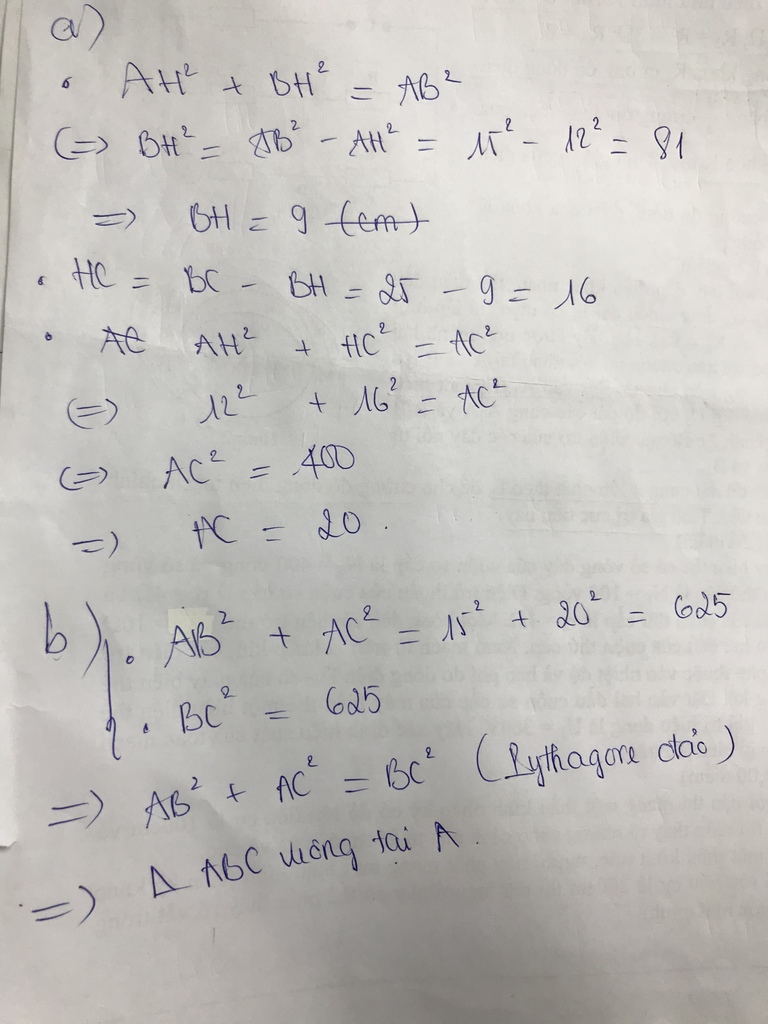 a)
• AH² + BH² = AB²
(=) BH² = AB² - AH² = 15² - 12² = 81
=> BH = 9 (cm)
• HC = BC - BH = 25 - 9 = 16
• AC AH² + HC² = AC²
(=) 12² + 16² = AC²
(=) AC² = 400
=) AC = 20.
b) • AB² + AC² = 15² + 20² = 625
• BC² = 625
=> AB² + AC² = BC² (Pythagore đảo)
=) Δ ABC vuông tại A.